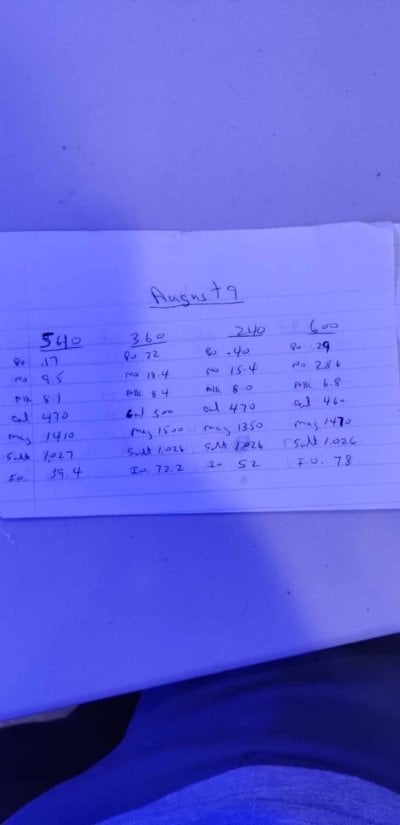 August 9
540 360 240 600
Po .17 Po .22 Po .40 Po .29
No 9.5 No 18.4 No 15.4 No 28.6
Alk 8.1 Alk 8.4 Alk 8.0 Alk 6.8
Cal 470 Cal 500 Cal 470 Cal 460
Mag 1410 Mag 1500 Mag 1350 Mag 1470
Salt 1.027 Salt 1.026 Salt 1.026 Salt 1.026
Io. 39.4 Io. 72.2 Io. 52 I.O. 78